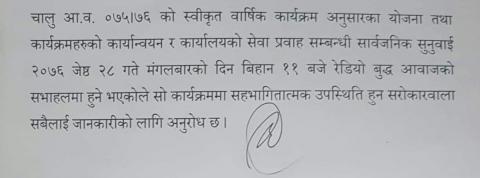 चालु आ.व. ०७५।७६ को स्वीकृत वार्षिक कार्यक्रम अनुसारका योजना तथा
कार्यक्रमहरुको कार्यान्वयन र कार्यालयको सेवा प्रवाह सम्बन्धी सार्वजनिक सुनुवाई
२०७६ जेष्ठ २८ गते मंगलबारको दिन बिहान ११ बजे रेडियो बुद्ध आवाजको
सभाहलमा हुने भएकोले सो कार्यक्रममा सहभागितात्मक उपस्थिति हुन सरोकारवाला
सबैलाई जानकारीको लागि अनुरोध छ।